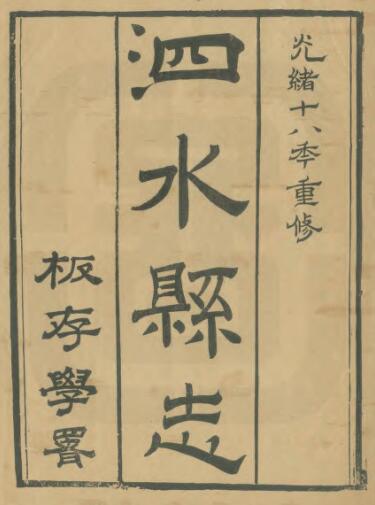 光緒十八年重修
泗水縣志
板存學署